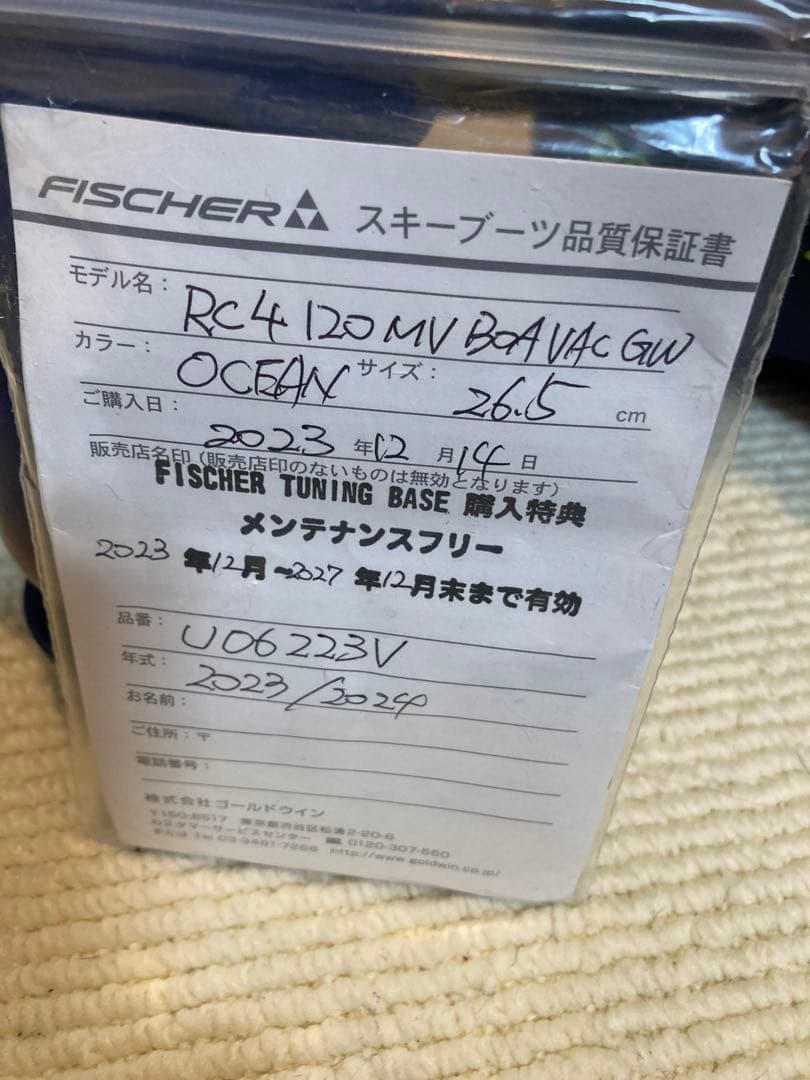 FISCHER スキーブーツ品質保証書
モデル名： RC4 120 MV BOA VAC GW
カラー： OCEAN サイズ： 26.5 cm
ご購入日： 2023 年 12 月 14 日
販売店名印（販売店印のないものは無効となります）
FISCHER TUNING BASE 購入特典
メンテナンスフリー
2023 年12月～2027 年12月末まで有効
品番： U06223V
年式： 2023/2024
お名前：
ご住所：〒
電話番号：
株式会社ゴールドウイン
〒150-8517 東京都渋谷区松濤2-20-6
カスタマーサービスセンター 0120-307-560
または Tel 03-3481-7266 http://www.goldwin.co.jp/